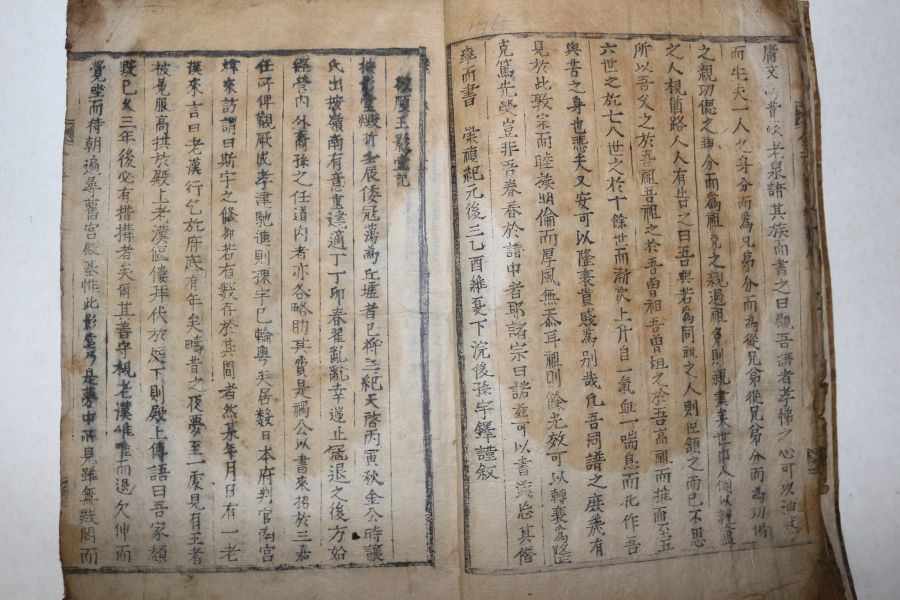 庸文而昔晈老泉譜其族而書之曰觀吾譜者孝悌之心可以油然
而生夫一人之身分而爲兄弟分而爲從兄弟從兄弟分而爲功緦
之親功緦之神分而爲祖免之親過祖免則親盡矣世之人何以親尊
之人視猶路人人有告之曰吾與若爲同祖之人則但領之而已不思
所以吾父之於吾祖吾祖之於吾曾祖吾曾祖之於吾高祖而推而至五
六世之於七八世之於十餘世而漸次上升自一氣血一喘息而化作吾
與若之身也悲夫又安可以隆衰貴賤爲別哉凡吾同譜之庶幾有
見於此敦宗而睦族明倫而厚風無忝耳祖則餘光效可以轉衰爲隆
克篤先榮豈非吾眷眷於譜中者耶諸宗曰諾茲可以書識治其僭
燕而書
崇禎紀元後三乙酉維夏下浣後孫宇鐸謹敍
敬順王影堂記
按影堂燬於壬辰倭寇蕩爲丘墟者已將三紀天啓丙寅秋金公時讓
氏出按嶺南有意重建適丁丁卯春翟亂亂幸遄止寇退之後方始
經營內外裔孫之任道內者亦各略助其費是禍公以書來招於三嘉
任所俾觀厥成孝津馳進則課宇已輪奐矣居數日本府判官南宮
煒來訪謂曰斯宇之修抑若有數存於其間者然某年月日有一老
漢來言曰老漢行乞於府底有年矣疇昔之夜夢至一處見有王者
被冕服高拱於殿上老漢傴僂拜伏於庭下則殿上傳語曰吾家頹
毀已久三年後必有措搆者矣爾其善守視老漢唯唯而退欠伸而
覺坐而待朝遍尋舊宮殿基惟此影堂乃是夢中所見雖無殿閣而